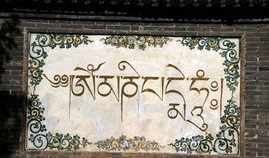 ༄ཨོཾ་མ་ཎི་པདྨེ་ཧཱུྃ༔